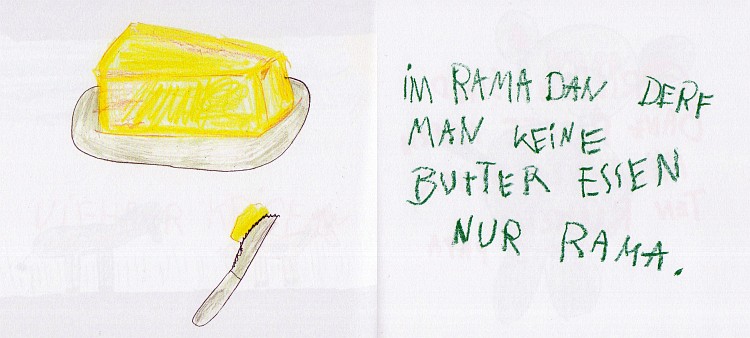 iM RAMADAN DERF
MAN KEINE
BUtTER ESSEN
NUR RAMA.